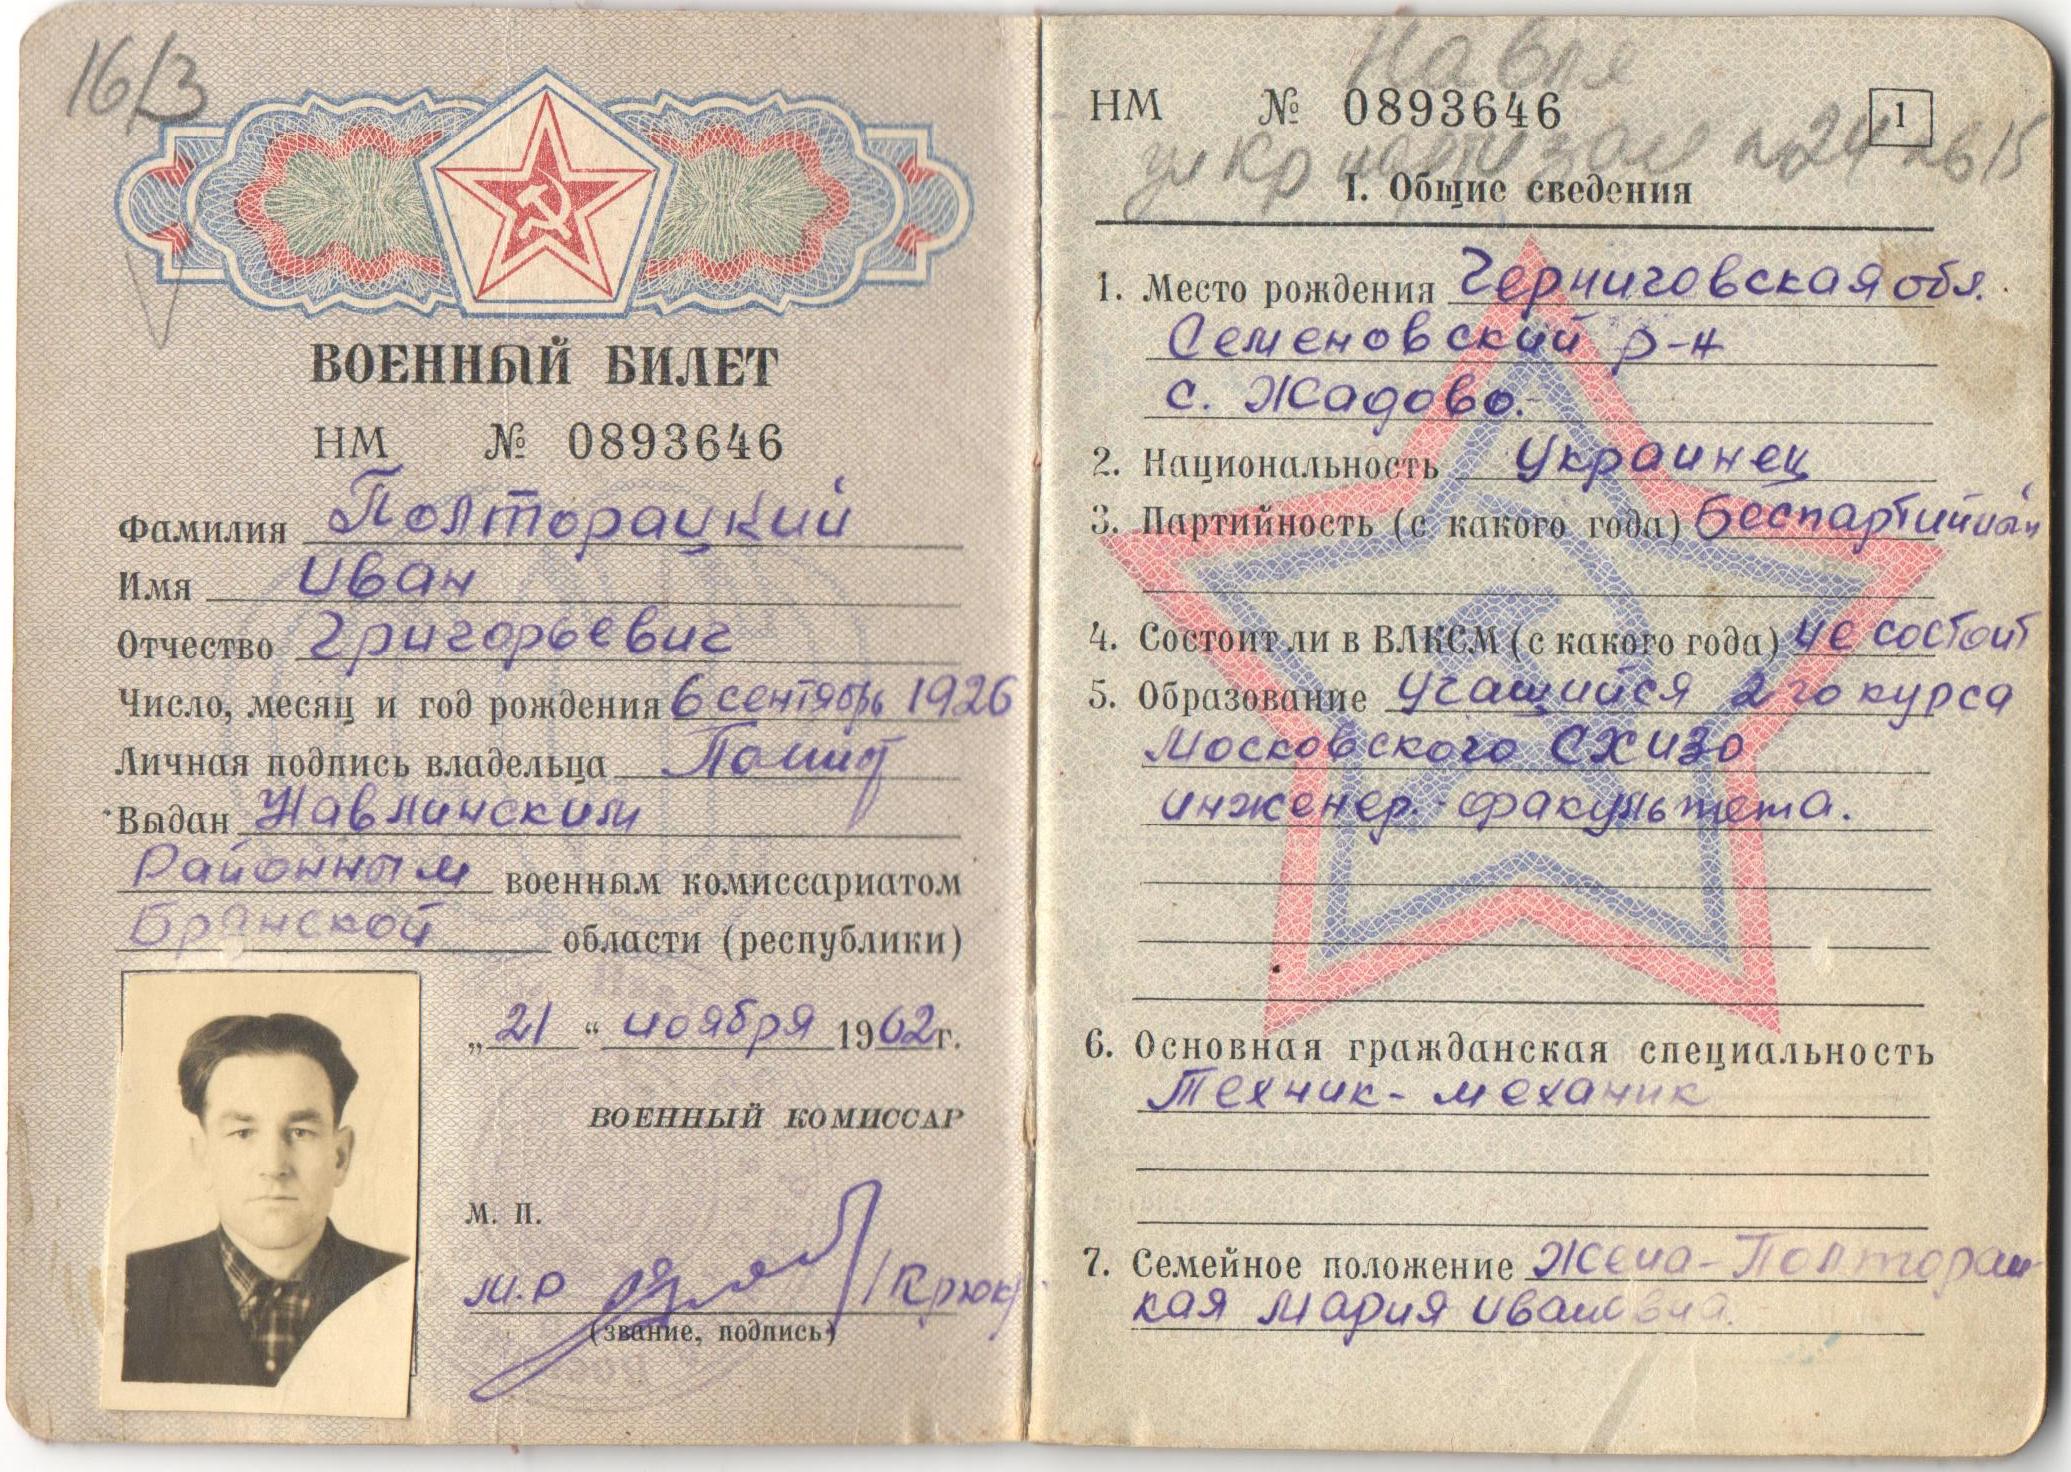 16/3
ВОЕННЫЙ БИЛЕТ
НМ № 0893646
Фамилия Полторацкий
Имя Иван
Отчество Григорьевич
Число, месяц и год рождения 6 сентябрь 1926
Личная подпись владельца
Выдан Навлинским
Районным военным комиссариатом
Брянской области (республики)
„21“ ноября 1962 г.
ВОЕННЫЙ КОМИССАР
М. П.
(звание, подпись)
Навля
НМ № 0893646 1
I. Общие сведения
1. Место рождения Черниговская обл.
Семеновский р-н
с. Жадово.
2. Национальность Украинец
3. Партийность (с какого года) беспартийный
4. Состоит ли в ВЛКСМ (с какого года) не состоит
5. Образование учащийся 2го курса
Московского СХИЗО
инженер. факультета.
6. Основная гражданская специальность
Техник-механик
7. Семейное положение Жена-Полторац-
кая Мария Ивановна.